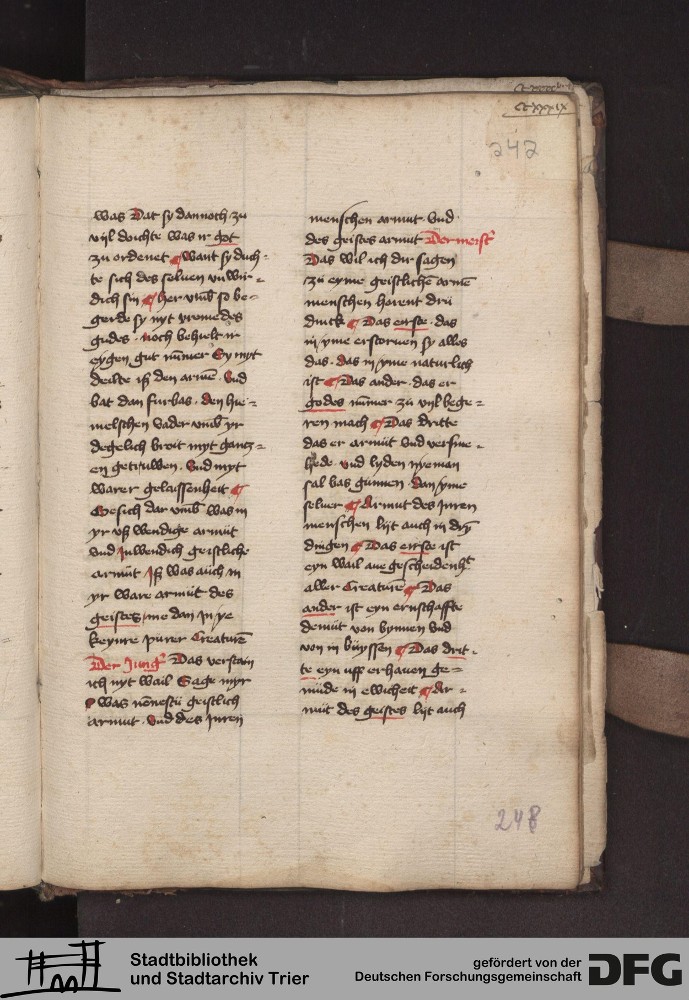 ccxxxix
242
was Dat sy dannoch zu
vyl doichte was ir got
zu ordenet ¶ want sy duch-
te sich des seluen vnwir-
dich sin ¶ her vmb so be-
gerde sy nyt vremdes
gudes. noch behielt ir
eygen gut nummer Sy nyt
deilte iß den armē. Vnd
bat dan furbas. den hie-
melschen vader vmb yr
degelich broit myt gantz-
en getruwen. Vnd myt
warer gelaissenheit ¶
Besich dar vmb was in
yr vß wendige armūt
vnd Inwendich geistliche
armūt Iß was auch in
yr ware armūt des
geistes, me dan in ye
keynre purer Creaturē
Der Jungʼ Das verstain
ich nyt wail Sage myr
was nōnestu geistlich
armut. Vnd des jnren
menschen armut. Vnd
des geistes armut Der meistʼ
Das wil ich dir sagen
zu eyme geistlichē armē
menschen horent drü
dinck ¶ Das eirste. das
in yme erstoruen sy alles
das. das in yme naturlich
ist ¶ Das ander. das er
godes nūmer zu vyl bege-
ren mach ¶ Das dritte
das er armūt vnd versme-
hede vnd lyden nyeman
sal bas gunnen. dan yme
seluer ¶ Armut des jnren
menschen lijt auch in dryn
dingen ¶ Das eirste ist
eyn wail aue gescheidenhʼt
aller Creaturē ¶ Das
ander ist eyn ernschaffte
demūt von bynnen vnd
von in büyssen ¶ Das drit-
te eyn vff erhauen ge-
mūde in ewicheit ¶ Ar-
mūt des geistes lijt auch
248
Stadtbibliothek
und Stadtarchiv Trier
gefördert von der
Deutschen Forschungsgemeinschaft
DFG